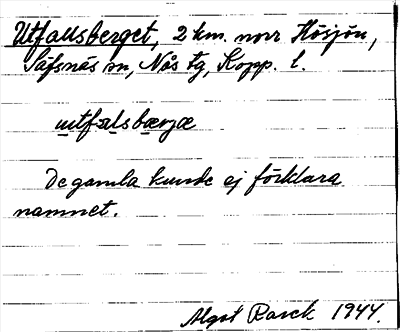 Utfallsberget, 2 km. norr Hösjön,
Säfsnäs sn, Nås tg, Kopp. l.
utfalsbærjæ
De gamla kunde ej förklara
namnet.
Algot 1944.